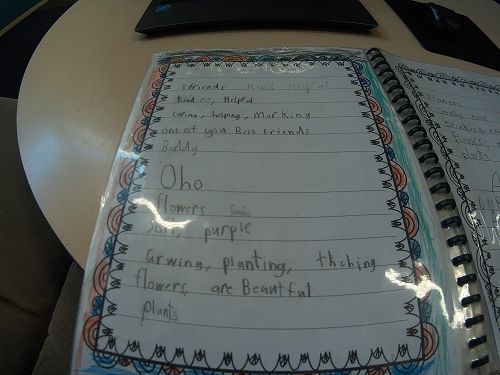 friends Kind Helpful
Kind, Helpful
caring, helping, Murking
one of you Best Friends
Buddy
Oho
flowers
Soft, purple
Grwing, planting, thching
flowers, are Beautful
plants
flowers
plants